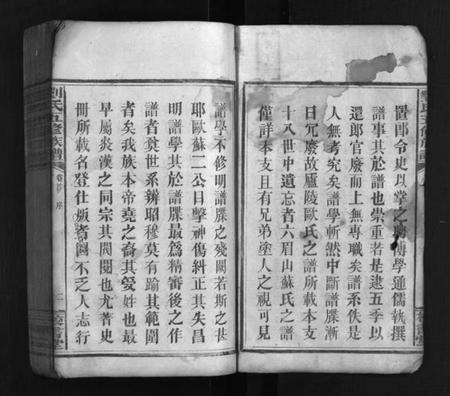 置郎令史以掌之聘博學通儒執撰
譜事其於譜也崇重若是逮五季以
還郎官廢而上無專職矣譜系佚是
人無考究矣譜學斬然中斷譜牒漸
日冗廢故廬陵歐氏之譜所載本支
十八世中遺忘者六眉山蘇氏之譜
僅詳本支且有兄弟塗人之視可見
譜學不修明譜牒之殘闕若斯之甚
耶歐蘇二公目擊神傷糾正其失昌
明譜學其於譜牒最爲精審後之作
譜者奠世系辨昭穆莫有踰其範圍
者矣我族本帝堯之裔其受姓也最
早屬炎漢之同宗其閥閱也尤著史
冊所載名登仕版者固不乏人志行
劉氏五修族譜
卷首 序
二